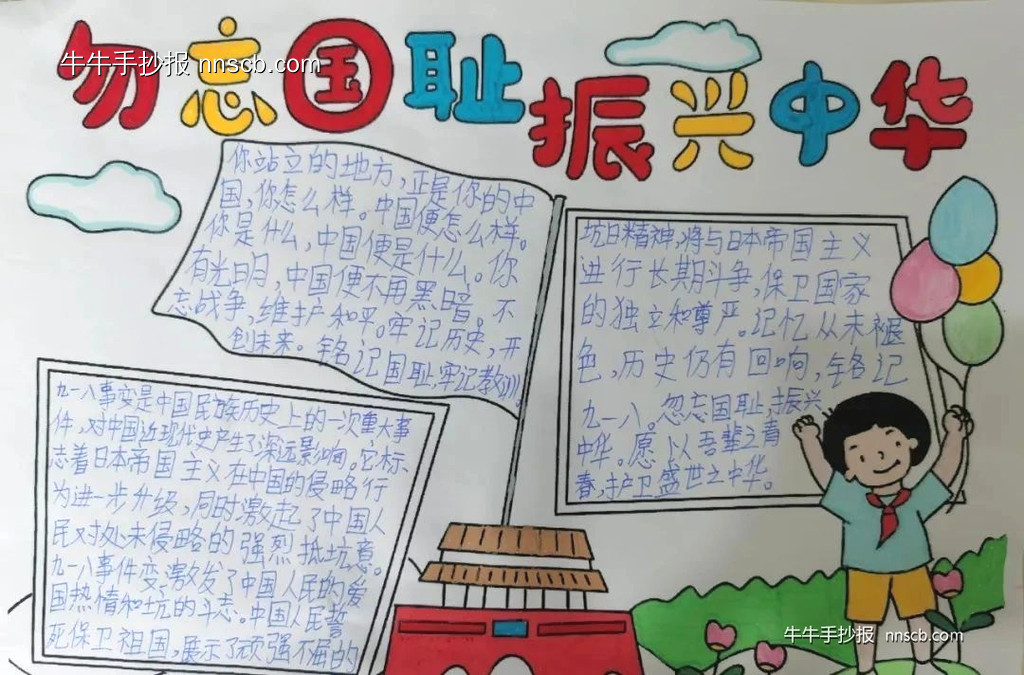 勿忘国耻振兴中华
牛牛手抄报 nnscb.com
你站立的地方,正是你的中
国,你怎么样。中国便怎么样。
你是什么,中国便是什么。你
有光明,中国便不用黑暗。不
忘战争,维护和平。牢记历史,开
创未来。铭记国耻,牢记教训!
坑日精神,将与日本帝国主义
进行长期斗争,保卫国家
的独立和尊严。记忆从未褪
色,历史仍有回响,铭记
九一八。忽忘国耻,振兴
中华。愿以吾辈之青
春,护卫盛世之中华。
九一八事变是中国民族历史上的一次重大事
件,对中国近现代史产生了深远影响。它标
志着日本帝国主义在中国的侵略行
为进一步升级,同时激起了中国人
民对处未侵略的强烈抵坑意。
九一八事件变激发了中国人民的爱
国热情和坑的斗志。中国人民誓
死保卫祖国,展示了顽强不屈的
牛牛手抄报 nnscb.com